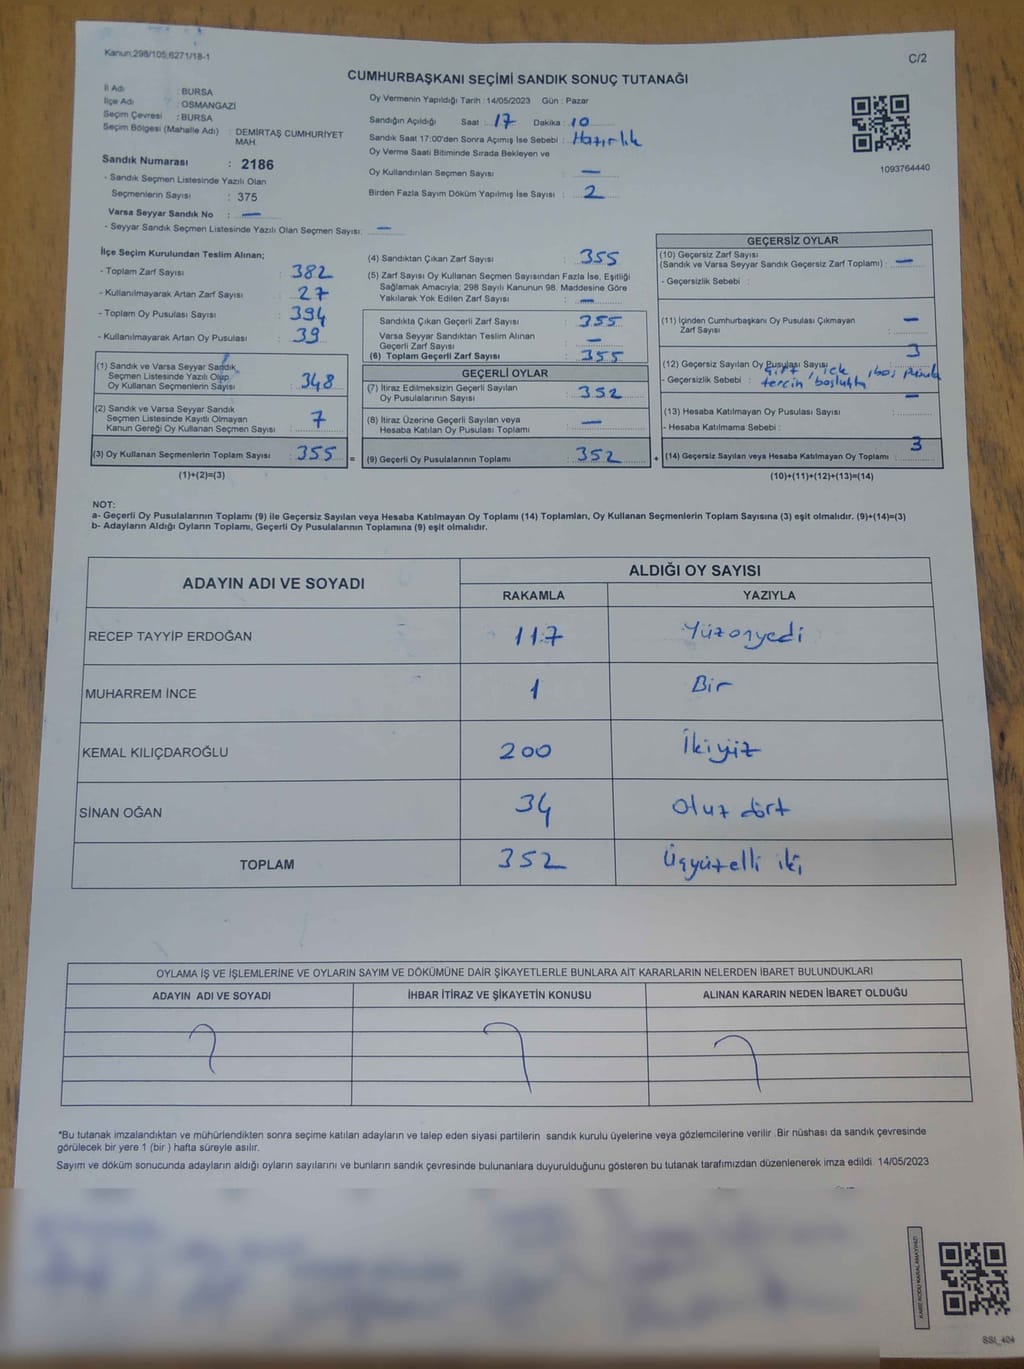 Kanun:298/105;6271/18-1
C/2
CUMHURBAŞKANI SEÇİMİ SANDIK SONUÇ TUTANAĞI
İl Adı : BURSA
İlçe Adı : OSMANGAZİ
Seçim Çevresi : BURSA
Seçim Bölgesi (Mahalle Adı) : DEMİRTAŞ CUMHURİYET
MAH.
Sandık Numarası : 2186
- Sandık Seçmen Listesinde Yazılı Olan
Seçmenlerin Sayısı : 375
Varsa Seyyar Sandık No : —
- Seyyar Sandık Seçmen Listesinde Yazılı Olan Seçmen Sayısı: —
Oy Vermenin Yapıldığı Tarih : 14/05/2023 Gün : Pazar
Sandığın Açıldığı Saat : 17 Dakika : 10
Sandık Saat 17:00'den Sonra Açımış İse Sebebi : Hazırlık
Oy Verme Saati Bitiminde Sırada Bekleyen ve
Oy Kullandırılan Seçmen Sayısı : —
Birden Fazla Sayım Döküm Yapılmış İse Sayısı : 2
1093764440
İlçe Seçim Kurulundan Teslim Alınan;
- Toplam Zarf Sayısı : 382
- Kullanılmayarak Artan Zarf Sayısı : 27
- Toplam Oy Pusulası Sayısı : 394
- Kullanılmayarak Artan Oy Pusulası : 39
(1) Sandık ve Varsa Seyyar Sandık
Seçmen Listesinde Yazılı Olup
Oy Kullanan Seçmenlerin Sayısı : 348
(2) Sandık ve Varsa Seyyar Sandık
Seçmen Listesinde Kayıtlı Olmayan
Kanun Gereği Oy Kullanan Seçmen Sayısı : 7
(3) Oy Kullanan Seçmenlerin Toplam Sayısı : 355 =
(1)+(2)=(3)
(4) Sandıktan Çıkan Zarf Sayısı : 355
(5) Zarf Sayısı Oy Kullanan Seçmen Sayısından Fazla İse, Eşitliği
Sağlamak Amacıyla; 298 Sayılı Kanunun 98. Maddesine Göre
Yakılarak Yok Edilen Zarf Sayısı : —
Sandıkta Çıkan Geçerli Zarf Sayısı : 355
Varsa Seyyar Sandıktan Teslim Alınan
Geçerli Zarf Sayısı : —
(6) Toplam Geçerli Zarf Sayısı : 355
GEÇERLİ OYLAR
(7) İtiraz Edilmeksizin Geçerli Sayılan
Oy Pusulalarının Sayısı : 352
(8) İtiraz Üzerine Geçerli Sayılan veya
Hesaba Katılan Oy Pusulası Toplamı : —
(9) Geçerli Oy Pusulalarının Toplamı : 352 +
GEÇERSİZ OYLAR
(10) Geçersiz Zarf Sayısı
(Sandık ve Varsa Seyyar Sandık Geçersiz Zarf Toplamı) : —
- Geçersizlik Sebebi :
(11) İçinden Cumhurbaşkanı Oy Pusulası Çıkmayan
Zarf Sayısı : —
(12) Geçersiz Sayılan Oy Pusulası Sayısı : 3
- Geçersizlik Sebebi : boş
(13) Hesaba Katılmayan Oy Pusulası Sayısı : —
- Hesaba Katılmama Sebebi :
(14) Geçersiz Sayılan veya Hesaba Katılmayan Oy Toplamı : 3
(10)+(11)+(12)+(13)=(14)
NOT:
a- Geçerli Oy Pusulalarının Toplamı (9) ile Geçersiz Sayılan veya Hesaba Katılmayan Oy Toplamı (14) Toplamları, Oy Kullanan Seçmenlerin Toplam Sayısına (3) eşit olmalıdır. (9)+(14)=(3)
b- Adayların Aldığı Oyların Toplamı, Geçerli Oy Pusulalarının Toplamına (9) eşit olmalıdır.
ADAYIN ADI VE SOYADI ALDIĞI OY SAYISI
RAKAMLA YAZIYLA
RECEP TAYYİP ERDOĞAN 117 Yüzonyedi
MUHARREM İNCE 1 Bir
KEMAL KILIÇDAROĞLU 200 İkiyüz
SİNAN OĞAN 34 Otuz dört
TOPLAM 352 Üçyüzelli iki
OYLAMA İŞ VE İŞLEMLERİNE VE OYLARIN SAYIM VE DÖKÜMÜNE DAİR ŞİKAYETLERLE BUNLARA AİT KARARLARIN NELERDEN İBARET BULUNDUKLARI
ADAYIN ADI VE SOYADI İHBAR İTİRAZ VE ŞİKAYETİN KONUSU ALINAN KARARIN NEDEN İBARET OLDUĞU
*Bu tutanak imzalandıktan ve mühürlendikten sonra seçime katılan adayların ve talep eden siyasi partilerin sandık kurulu üyelerine veya gözlemcilerine verilir .Bir nüshası da sandık çevresinde
görülecek bir yere 1 (bir ) hafta süreyle asılır.
Sayım ve döküm sonucunda adayların aldığı oyların sayılarını ve bunların sandık çevresinde bulunanlara duyurulduğunu gösteren bu tutanak tarafımızdan düzenlenerek imza edildi. 14/05/2023
KARE KODU KARALAMAYINIZ!
SSI_404